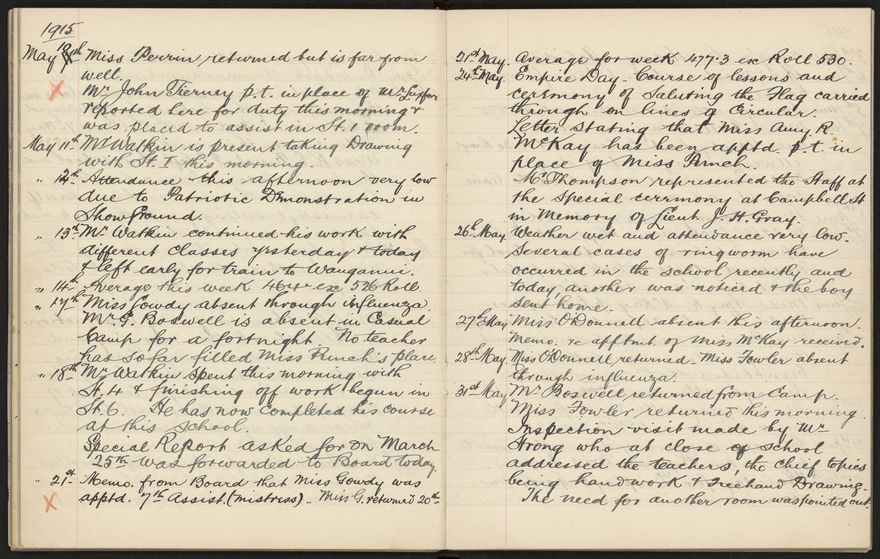 1915
May 10th Miss Perrin returned but is far from
well.
Mr John Tierney p.t. in place of Mr
reported here for duty this morning &
was placed to assist in St. 1 room.
May 11th Mr Watkin is present taking Drawing
with St. I this morning.
" 12th Attendance this afternoon very low
due to Patriotic Demonstration in
Showground.
" 13th Mr Watkin continued his work with
different classes yesterday & today
& left early for train to Wanganui.
" 14th Average this week 464 exc 526 Roll.
" 17th Miss Gowdy absent through influenza.
Mr G. Boswell is absent in Casual
Camp for a fortnight. No teacher
has so far filled Miss Pench's place
" 18th Mr Watkin spent this morning with
St. 4 & finishing off work begun in
St. 6. He has now completed his course
at this school.
Special Report asked for on March
25th was forwarded to Board today.
" 21st Memo. from Board that Miss Gowdy was
apptd. 7th Assist. (mistress) - Miss G. returned 20th
21st May. Average for week 477.3 exc Roll 530.
24th May Empire Day - Course of lessons and
ceremony of Saluting the Flag carried
through on lines of Circular.
Letter stating that Miss Amy R.
McKay has been apptd. p.t. in
place of Miss Pench.
Mr Thompson represented the Staff at
the special ceremony at Campbell St
in Memory of Lieut J. H. Gray.
26th May Weather wet and attendance very low.
Several cases of ringworm have
occurred in the school recently and
today another was noticed & the boy
sent home.
27th May Miss O'Donnell absent this afternoon.
Memo. re apptmt of Miss McKay received.
28th May Miss O'Donnell returned - Miss Fowler absent
through influenza.
31st May Mr Boswell returned from Camp.
Miss Fowler returned this morning.
Inspection visit made by Mr
Strong who at close of school
addressed the teachers, the chief topics
being handwork & Freehand Drawing.
The need for another room was pointed out.